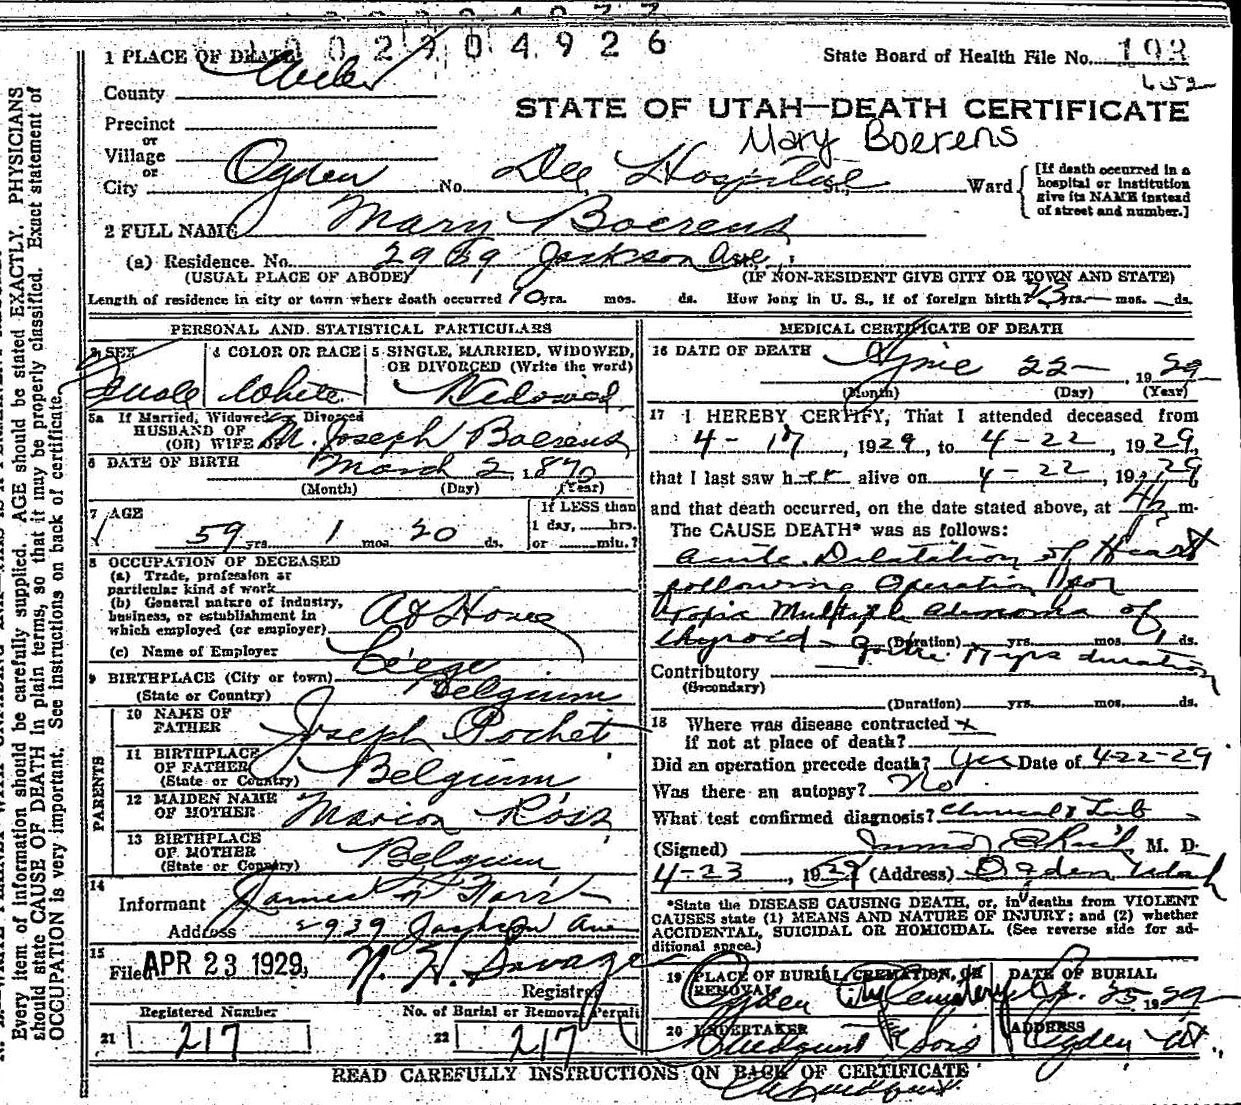 1 PLACE OF DEATH 0 0 2 9 0 4 9 2 6
State Board of Health File No. 193
652
County Weber
STATE OF UTAH—DEATH CERTIFICATE
Precinct
or
Mary Boerens
Village
or
City Ogden No. Dee Hospital St., Ward
[If death occurred in a hospital or institution give its NAME instead of street and number.]
2 FULL NAME Mary Boerens
(a) Residence. No. 2939 Jackson Ave.
(USUAL PLACE OF ABODE) (IF NON-RESIDENT GIVE CITY OR TOWN AND STATE)
Length of residence in city or town where death occurred 10 yrs. mos. ds. How long in U. S., if of foreign birth? yrs. mos. ds.
PERSONAL AND STATISTICAL PARTICULARS
3 SEX 4 COLOR OR RACE 5 SINGLE, MARRIED, WIDOWED, OR DIVORCED (Write the word)
Female White Widowed
5a If Married, Widowed or Divorced
HUSBAND OF
(OR) WIFE OF M. Joseph Boerens
6 DATE OF BIRTH March 2, 1870
(Month) (Day) (Year)
7 AGE 59 yrs. 1 mos. 20 ds.
If LESS than
1 day, hrs.
or min.?
8 OCCUPATION OF DECEASED
(a) Trade, profession or
particular kind of work
(b) General nature of industry,
business, or establishment in
which employed (or employer) At Home
(c) Name of Employer
9 BIRTHPLACE (City or town) Leige
(State or Country) Belgium
PARENTS
10 NAME OF
FATHER Joseph Pochet
11 BIRTHPLACE
OF FATHER
(State or Country) Belgium
12 MAIDEN NAME
OF MOTHER Marion Ross
13 BIRTHPLACE
OF MOTHER
(State or Country) Belgium
14
Informant James N Farr
Address 2939 Jackson Ave
15
Filed APR 23 1929, N. H. Savage
Registrar
Registered Number No. of Burial or Removal Permit
21 217 22 217
MEDICAL CERTIFICATE OF DEATH
16 DATE OF DEATH April 22 1929
(Month) (Day) (Year)
17 I HEREBY CERTIFY, That I attended deceased from
4-17, 1929, to 4-22, 1929,
that I last saw her alive on 4-22, 1929
and that death occurred, on the date stated above, at m.
The CAUSE DEATH* was as follows:
Acute Dilatation of Heart
following Operation for
toxic Multiple adenoma of
thyroid (Duration) yrs. mos. 1 ds.
Contributory
(Secondary)
duration
(Duration) yrs. mos. ds.
18 Where was disease contracted x
if not at place of death?
Did an operation precede death? yes Date of 4-22-29
Was there an autopsy? No
What test confirmed diagnosis? Clinical & Lab
(Signed) M. D.
4-23, 1929 (Address) Ogden Utah
*State the DISEASE CAUSING DEATH, or, in deaths from VIOLENT
CAUSES state (1) MEANS AND NATURE OF INJURY; and (2) whether
ACCIDENTAL, SUICIDAL OR HOMICIDAL. (See reverse side for ad-
ditional space.)
19 PLACE OF BURIAL, CREMATION, OR REMOVAL DATE OF BURIAL
Ogden City Cemetery 25 1929
20 UNDERTAKER ADDRESS
Lindquist & Sons Ogden Ut.
READ CAREFULLY INSTRUCTIONS ON BACK OF CERTIFICATE
Every item of information should be carefully supplied. AGE should be stated EXACTLY. PHYSICIANS
should state CAUSE OF DEATH in plain terms, so that it may be properly classified. Exact statement of
OCCUPATION is very important. See instructions on back of certificate.